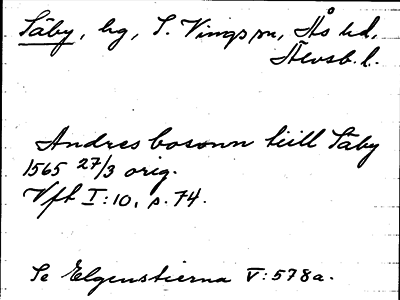 Säby, hg, S. Vings sn, Ås hd,
Älvsb. l.
Andres bosonn till Säby
1565 27/3 orig.
Vft I:10, s. 74.
Se Elgenstierna V:578a.